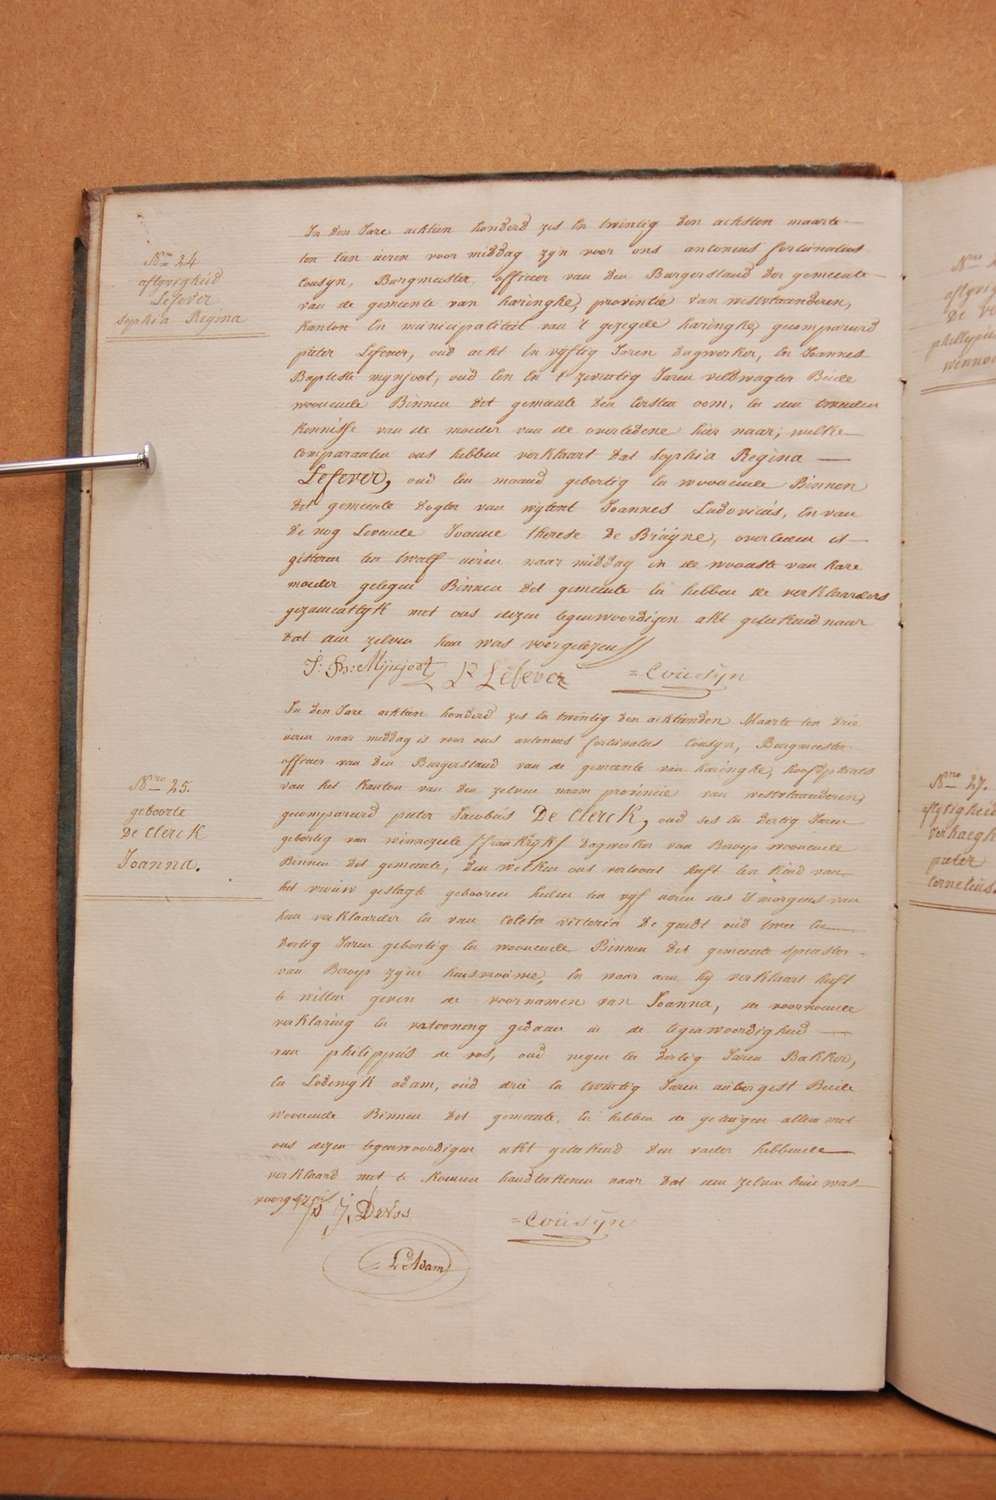 Nro 24
aflyvigheid
Lefever
Sophia Regina
In den Jare achtien honderd zes en twintig den achsten maarte
ten tien ueren voor middag zyn voor ons antonius fortunatus
Cousyn, Borgmeister, officier van den Burgerstand der gemeente
van de gemeente van haringhe, provintie van westvlaanderen,
kanton en municipaliteit van 't gezegde haringhe, gecompareerd
pieter Lefever, oud acht en vyftig Jaren dagwerker, en Joannes
Baptiste mynjoot, oud een en t'zeventig Jaren veldwagter Beide
wonende Binnen det gemeente den eersten oom, en den tweeden
kennisse van de moeder van de overledene hier naar, welke
comparanten ons hebben verklaart dat Sophia Regina
Lefever, oud een maand gebortig en wonende Binnen
det gemeente dogter van wylent Joannes Ludovicus, en van
de nog Levende Joanne therese de Bruyne, overleden is
gisteren ten twalf ueren naar middag in de woonste van hare
moeder gelegen Binnen det gemeente en hebben de verklaarders
gezamentlyk met ons dezen tegenwoordigen akt geteekend naar
dat aen zelven hun was voorgelezen
J: Bte: Mijnjoot P Lefever =Cousyn
Nro 25.
geboorte
De Clerck
Joanna.
In den Jare achtien honderd zes en twintig den achtienden Maarte ten drie
ueren naar middag is voor ons antonius fortunatus Cousyn, Burgmeester
officier van den Burgerstand van de gemeente van haringhe, hooftplaats
van het Kanton van den zelven naam provincie van westvlaanderen,
gecompareerd pieter Jacobus De Clerck, oud ses en dertig Jaren
gebortig van winnezeele /frankryk/ dagwerker van Beroep wonende
Binnen det gemeente, den welken ons vertoont heeft een kind van
het vrouw geslagt geboren heden ten vyf ueren des s'morgens van
hem verklaarder en van Coleta victoria De guidt oud twee en
dertig Jaren gebortig en wonende Binnen det gemeente spenster
van Beroep zyne huisvrouwe, en waar aen hy verklaart heeft
te willen geven de voornamen van Joanna, de voornoemde
verklaring en vertooning gedaen in de tegenwoordigheid
van philippus de vos, oud negen en dertig Jaren Bakker,
en Lodewyk adam, oud drie en twintig Jaren aubergist Beide
wonende Binnen det gemeente, en hebben de getuigen alleen met
ons dezen tegenwoordigen akt geteekend den vader hebbende
verklaard niet te konnen handteekenen naar dat aen zelven hun was
voorgelezen J, DeVos =Cousyn
Ld Adam
Nro
aflyvig
De V
philippus
winno
Nro 27.
aflyvigheid
verhaegh
pieter
Cornelius